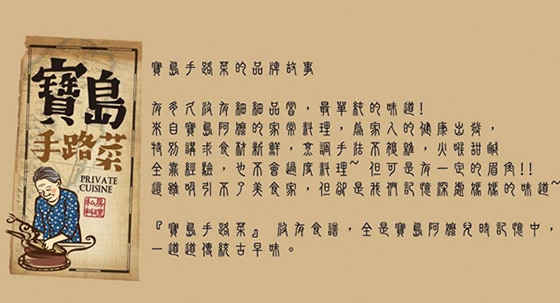 寶島
手路菜
PRIVATE
CUISINE
私房
料理
寶島手路菜的品牌故事
有多久沒有細細品嘗，最單純的味道!
來自寶島阿嬤的家常料理，為家人的健康出發，
特別講求食材新鮮，烹調手法不複雜，火喉甜鹹
全憑經驗，也不會過度料理~ 但可是有一定的眉角!!
這雖吸引不了美食家，但卻是我們記憶深處媽媽的味道~
『寶島手路菜』 沒有食譜，全是寶島阿嬤兒時記憶中，
一道道傳統古早味。